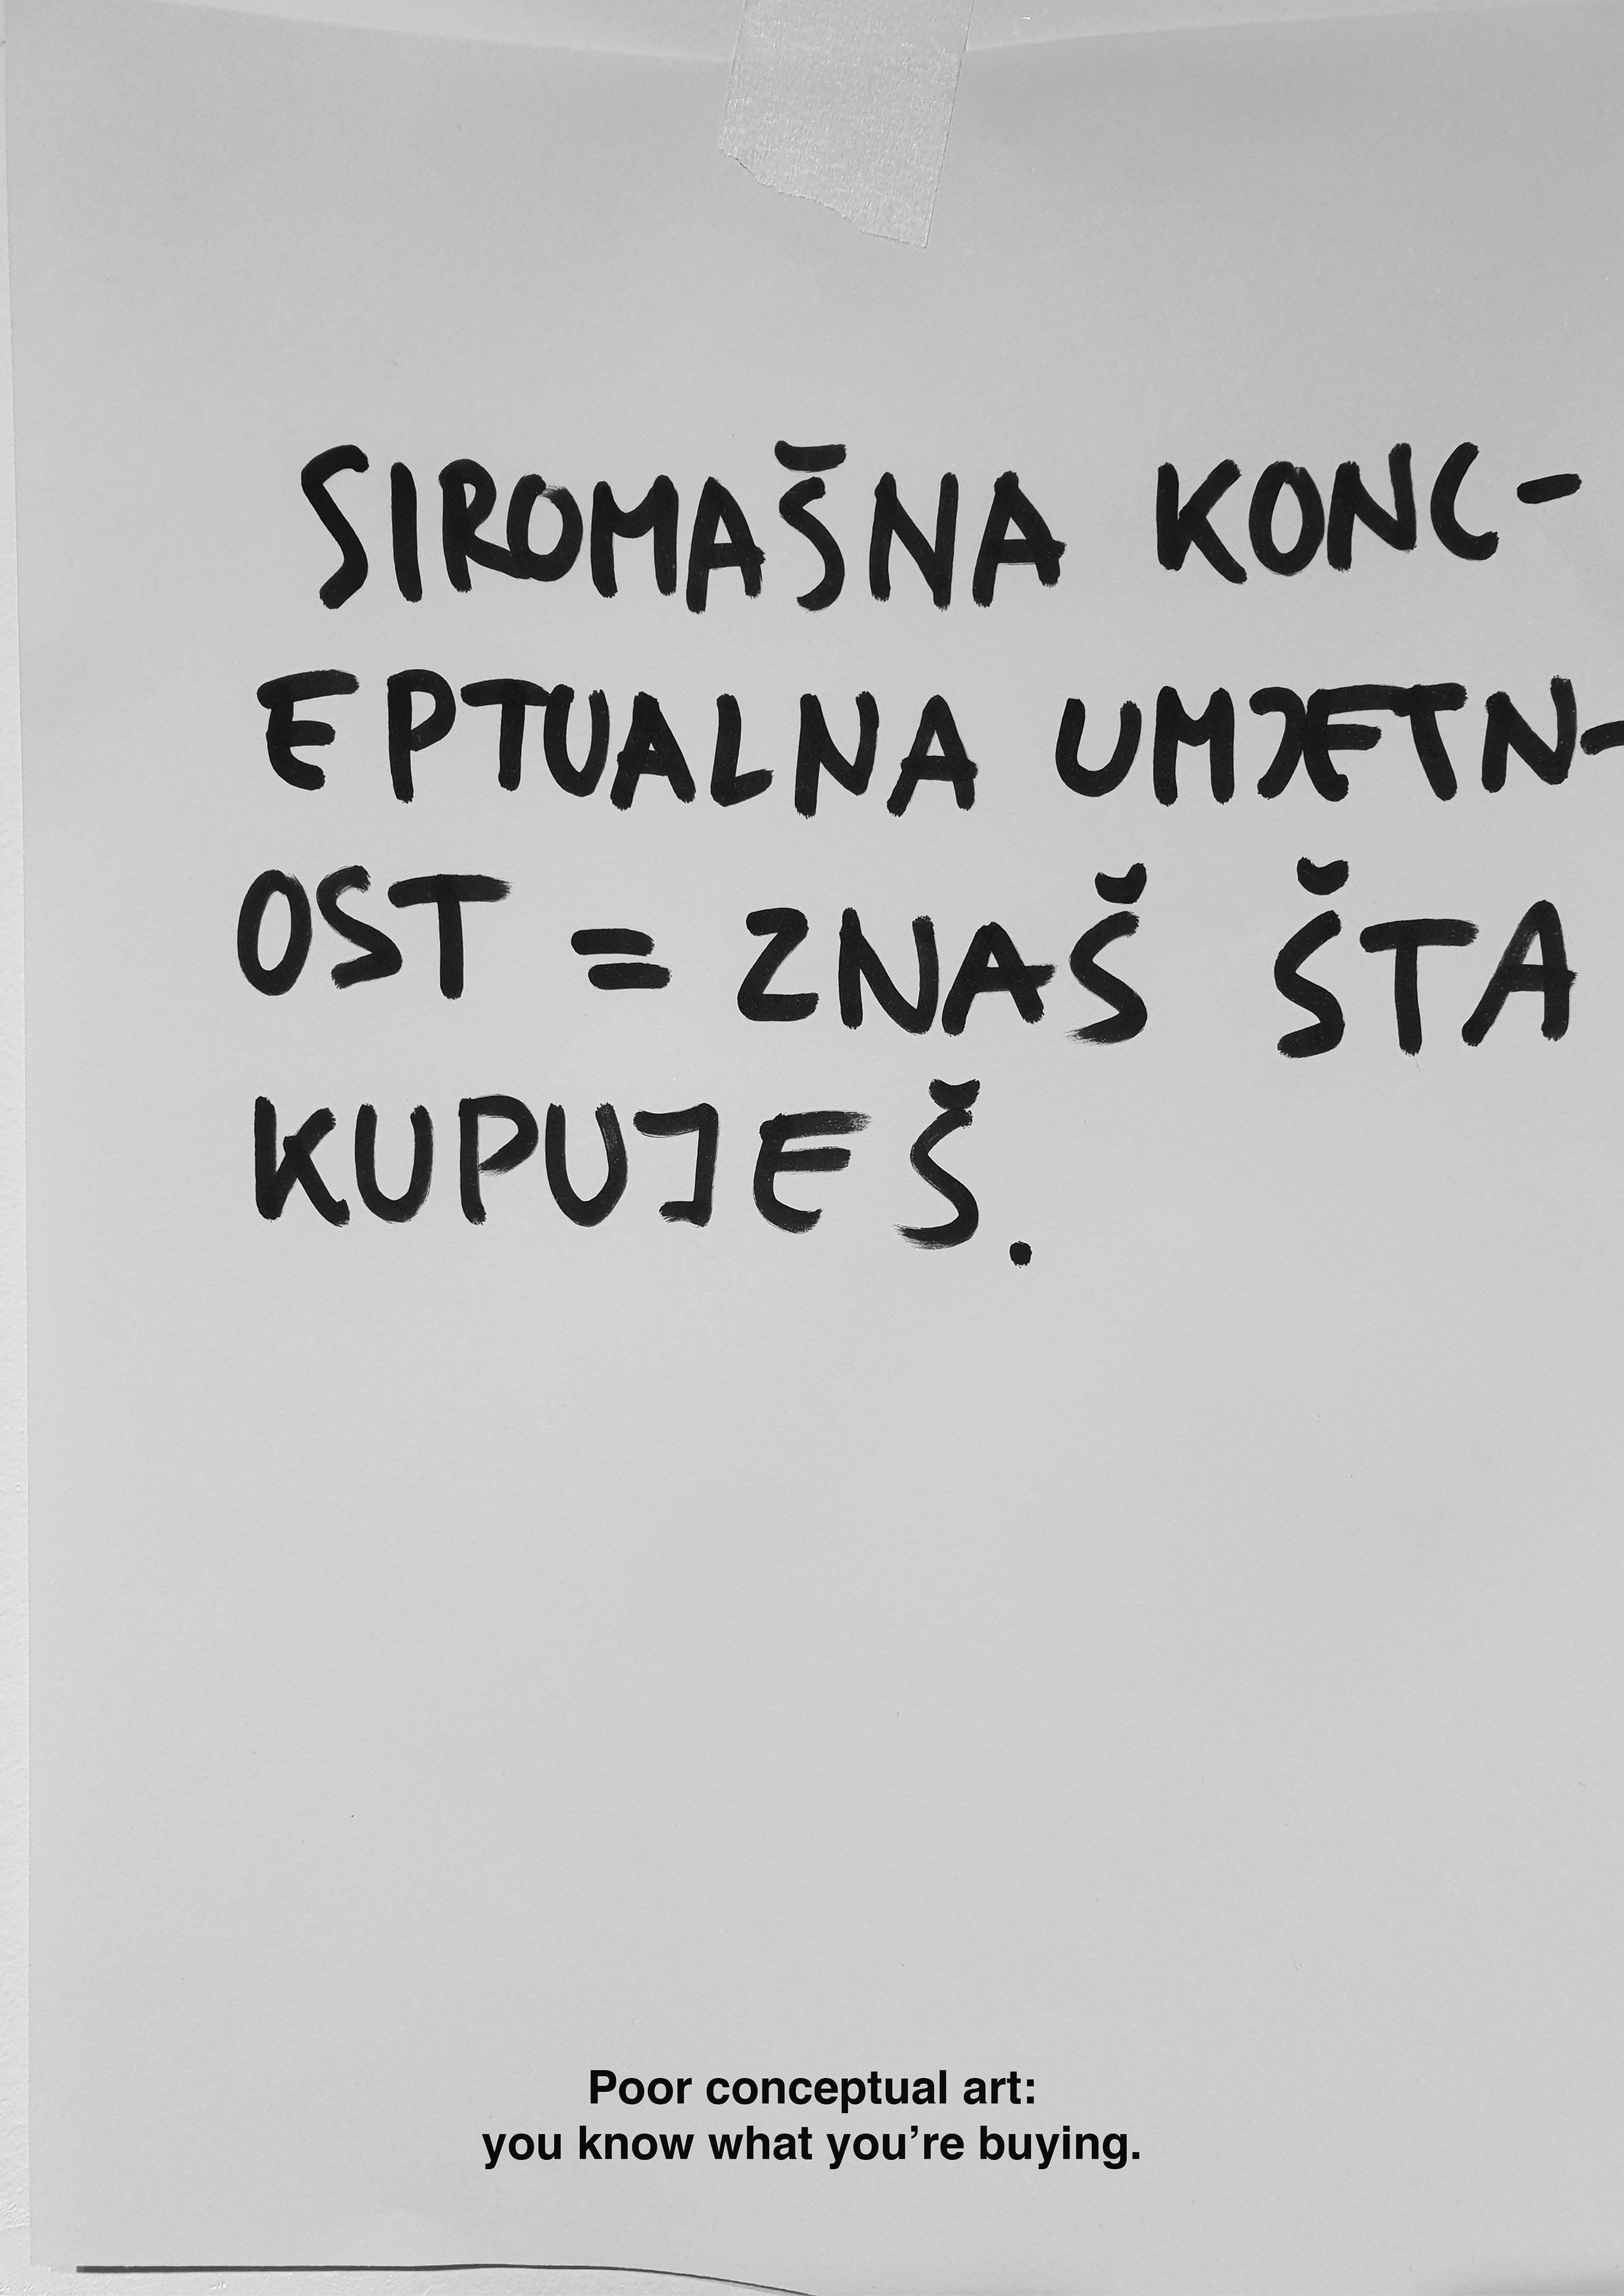 SIROMAŠNA KONC-
EPTUALNA UMJETN-
OST = ZNAŠ ŠTA
KUPUJEŠ.
Poor conceptual art:
you know what you’re buying.